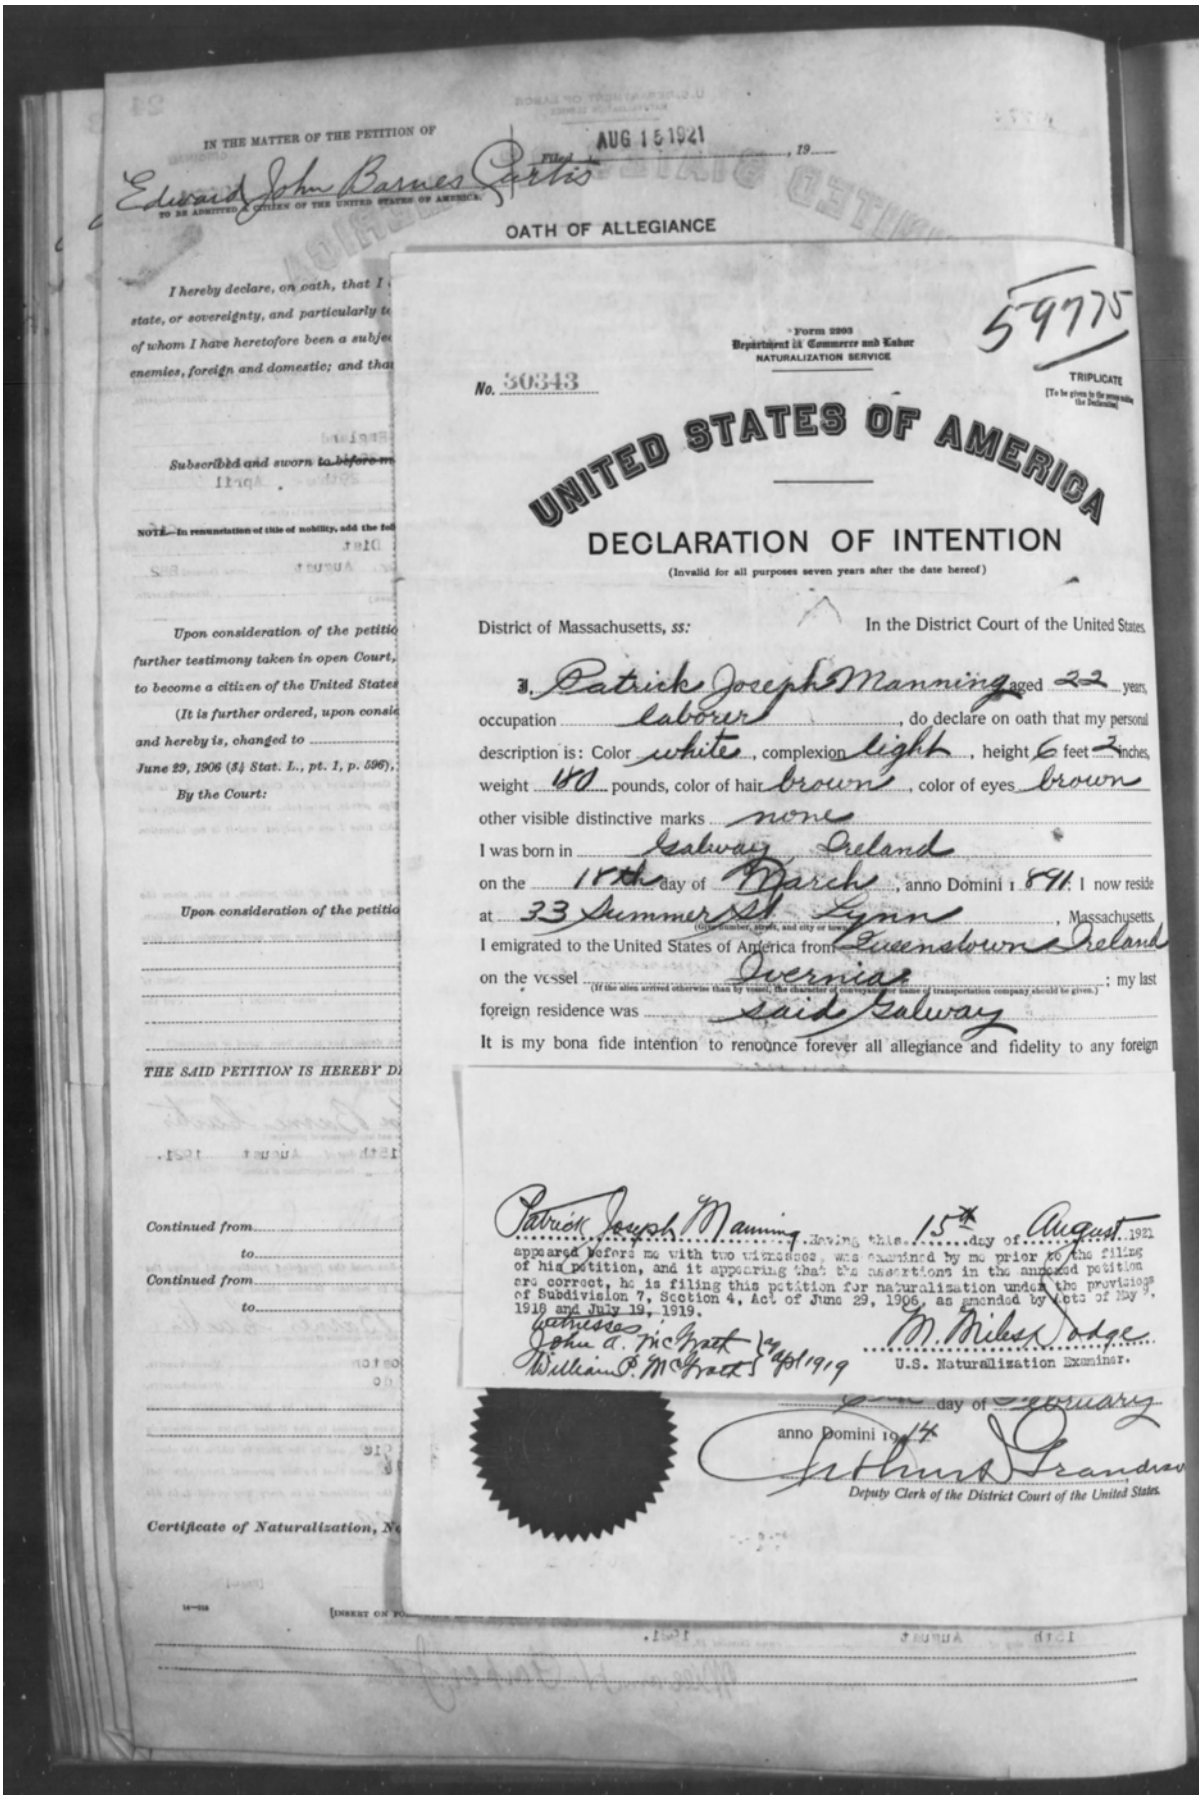 IN THE MATTER OF THE PETITION OF
Filed AUG 15 1921, 19
Edward John Barnes Curtis
TO BE ADMITTED A CITIZEN OF THE UNITED STATES OF AMERICA.
OATH OF ALLEGIANCE
I hereby declare, on oath, that I
state, or sovereignty, and particularly to
of whom I have heretofore been a subje
enemies, foreign and domestic; and that
Subscribed and sworn to before m
NOTE.—In renunciation of title of nobility, add the fol
Upon consideration of the petitio
further testimony taken in open Court,
to become a citizen of the United States
(It is further ordered, upon consid
and hereby is, changed to
June 29, 1906 (34 Stat. L., pt. 1, p. 596),
By the Court:
Upon consideration of the petitio
THE SAID PETITION IS HEREBY D
Continued from
to
Continued from
to
Certificate of Naturalization, N
[INSERT ON FO
59775
Form 2203
Department of Commerce and Labor
NATURALIZATION SERVICE
No. 30343
TRIPLICATE
[To be given to the person making
the Declaration]
UNITED STATES OF AMERICA
DECLARATION OF INTENTION
(Invalid for all purposes seven years after the date hereof)
District of Massachusetts, ss: In the District Court of the United States.
I, Patrick Joseph Manning, aged 22 years,
occupation laborer, do declare on oath that my personal
description is: Color white, complexion light, height 6 feet 2 inches,
weight 180 pounds, color of hair brown, color of eyes brown
other visible distinctive marks none
I was born in Galway, Ireland
on the 18th day of March, anno Domini 1891: I now reside
at 33 Summer St. Lynn, Massachusetts.
(Give number, street, and city or town.)
I emigrated to the United States of America from Queenstown Ireland
on the vessel Ivernia; my last
(If the alien arrived otherwise than by vessel, the character of conveyance or name of transportation company should be given.)
foreign residence was said Galway
It is my bona fide intention to renounce forever all allegiance and fidelity to any foreign
Patrick Joseph Manning. Having this 15th day of August 1921
appeared before me with two witnesses, was examined by me prior to the filing
of his petition, and it appearing that the assertions in the annexed petition
are correct, he is filing this petition for naturalization under the provisions
of Subdivision 7, Section 4, Act of June 29, 1906, as amended by Acts of May 9,
1918 and July 19, 1919.
Witnesses:
John A. McGrath
William P. McGrath
apl 1919
M. Miles Dodge
U.S. Naturalization Examiner.
day of February
anno Domini 1914
Deputy Clerk of the District Court of the United States.